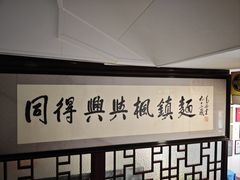 同得興與楓鎮麵